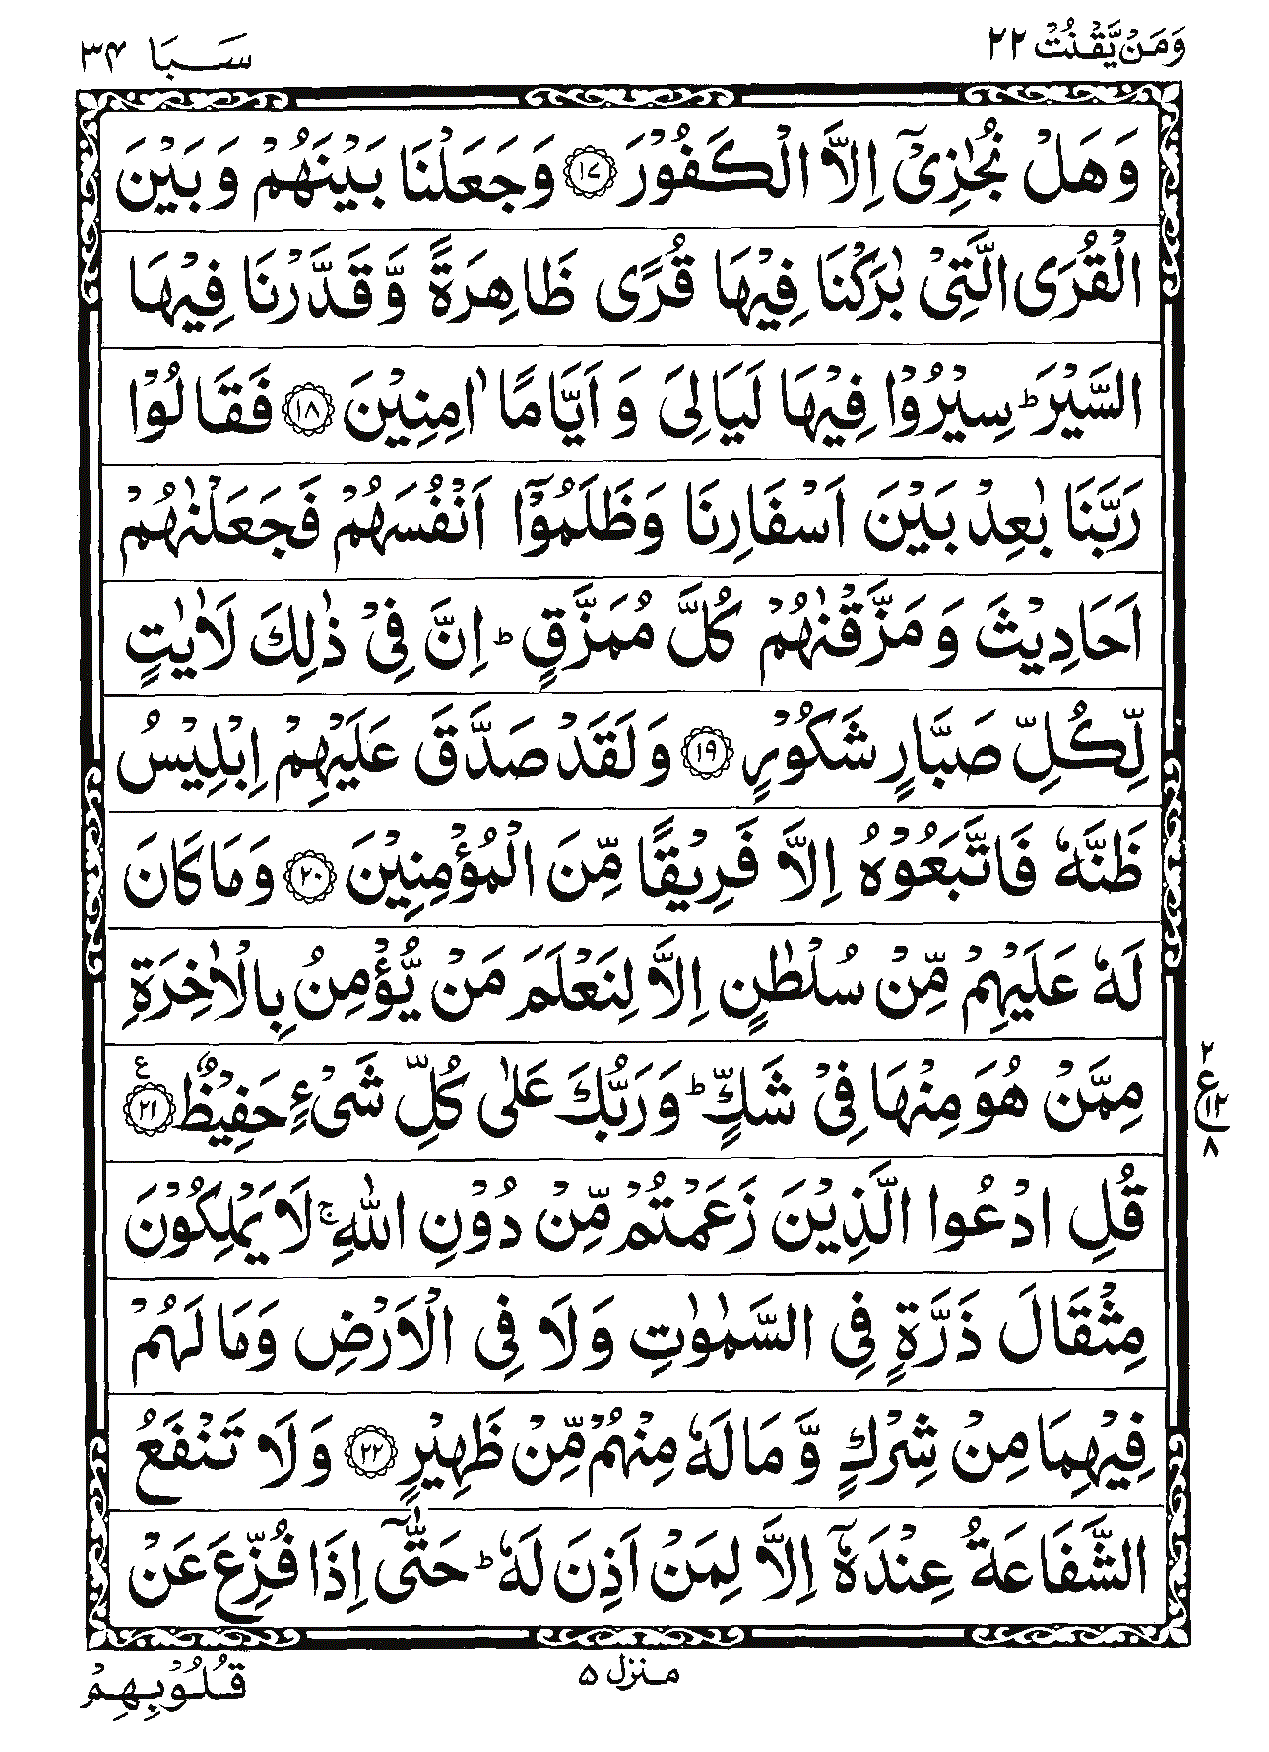 وَمَنْ يَّقْنُتْ ٢٢
سَبَا ٣٤
وَهَلْ نُجٰزِیْۤ اِلَّا الْكَفُوْرَ ﴿۱۷﴾ وَجَعَلْنَا بَیْنَهُمْ وَبَیْنَ
الْقُرَی الَّتِیْ بٰرَكْنَا فِیْهَا قُرًی ظَاهِرَةً وَّقَدَّرْنَا فِیْهَا
السَّیْرَ ؕ سِیْرُوْا فِیْهَا لَیَالِیَ وَاَیَّامًا اٰمِنِیْنَ ﴿۱۸﴾ فَقَالُوْا
رَبَّنَا بٰعِدْ بَیْنَ اَسْفَارِنَا وَظَلَمُوْۤا اَنْفُسَهُمْ فَجَعَلْنٰهُمْ
اَحَادِیْثَ وَمَزَّقْنٰهُمْ كُلَّ مُمَزَّقٍ ؕ اِنَّ فِیْ ذٰلِكَ لَاٰیٰتٍ
لِّكُلِّ صَبَّارٍ شَكُوْرٍ ﴿۱۹﴾ وَلَقَدْ صَدَّقَ عَلَیْهِمْ اِبْلِیْسُ
ظَنَّهٗ فَاتَّبَعُوْهُ اِلَّا فَرِیْقًا مِّنَ الْمُؤْمِنِیْنَ ﴿۲۰﴾ وَمَا كَانَ
لَهٗ عَلَیْهِمْ مِّنْ سُلْطٰنٍ اِلَّا لِنَعْلَمَ مَنْ یُّؤْمِنُ بِالْاٰخِرَةِ
مِمَّنْ هُوَ مِنْهَا فِیْ شَكٍّ ؕ وَرَبُّكَ عَلٰی كُلِّ شَیْءٍ حَفِیْظٌ ﴿۲۱﴾ ع
٢ ع ١٢ ٨
قُلِ ادْعُوا الَّذِیْنَ زَعَمْتُمْ مِّنْ دُوْنِ اللّٰهِ ۚ لَا یَمْلِكُوْنَ
مِثْقَالَ ذَرَّةٍ فِی السَّمٰوٰتِ وَلَا فِی الْاَرْضِ وَمَا لَهُمْ
فِیْهِمَا مِنْ شِرْكٍ وَّمَا لَهٗ مِنْهُمْ مِّنْ ظَهِیْرٍ ﴿۲۲﴾ وَلَا تَنْفَعُ
الشَّفَاعَةُ عِنْدَهٗۤ اِلَّا لِمَنْ اَذِنَ لَهٗ ؕ حَتّٰۤی اِذَا فُزِّعَ عَنْ
منزل ۵
قُلُوْبِهِمْ